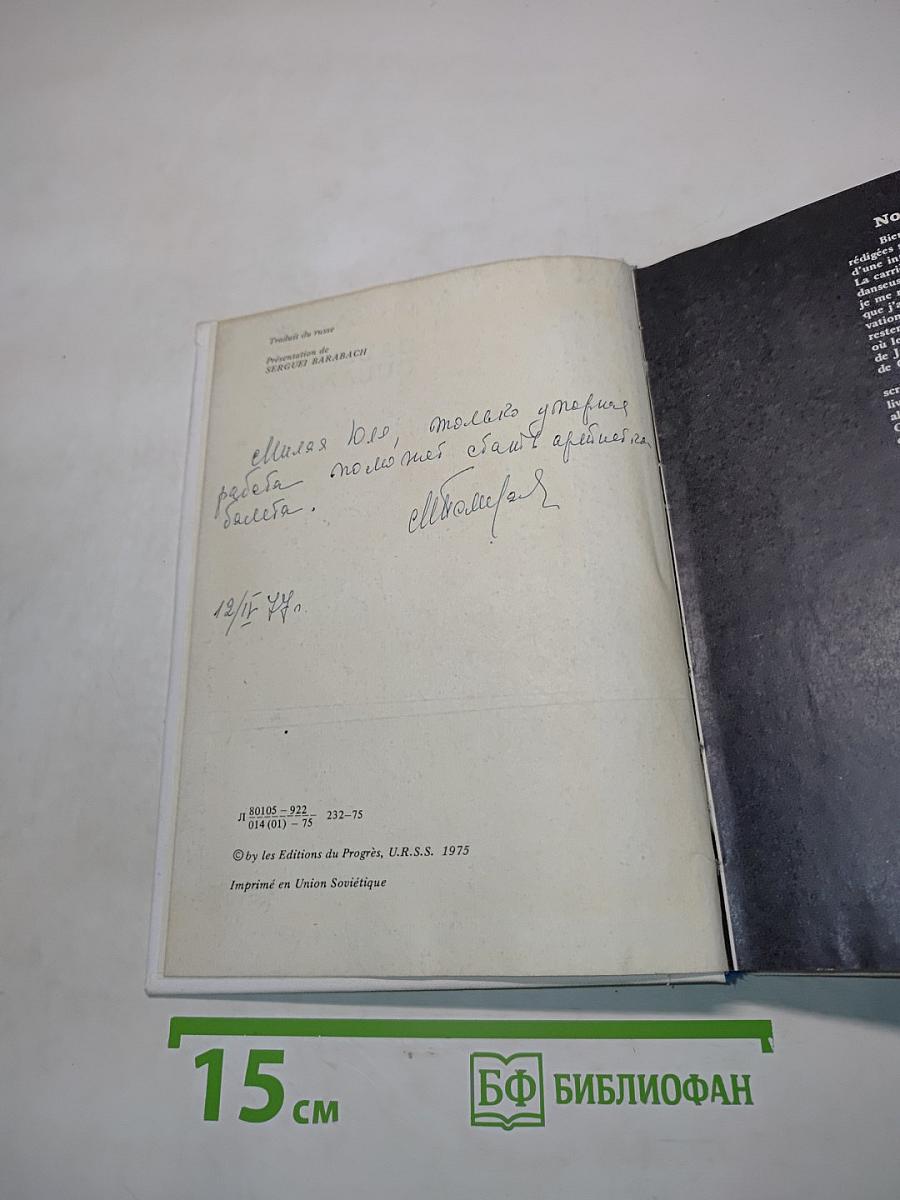 Traduit du russe
Présentation de
SERGUEI BARABACH
Милая Юля, только упорная
работа поможет стать артисткой
балета.
12/IV 77г.
Л 80105–922
014(01)–75 232–75
© by les Editions du Progrès, U.R.S.S. 1975
Imprimé en Union Soviétique
No
Bien
rédigées
d'une in
La carri
danseus
je me
que j'a
vation
rester
où le
de J
de
scr
liv
al
15 см
БФ БИБЛИОФАН